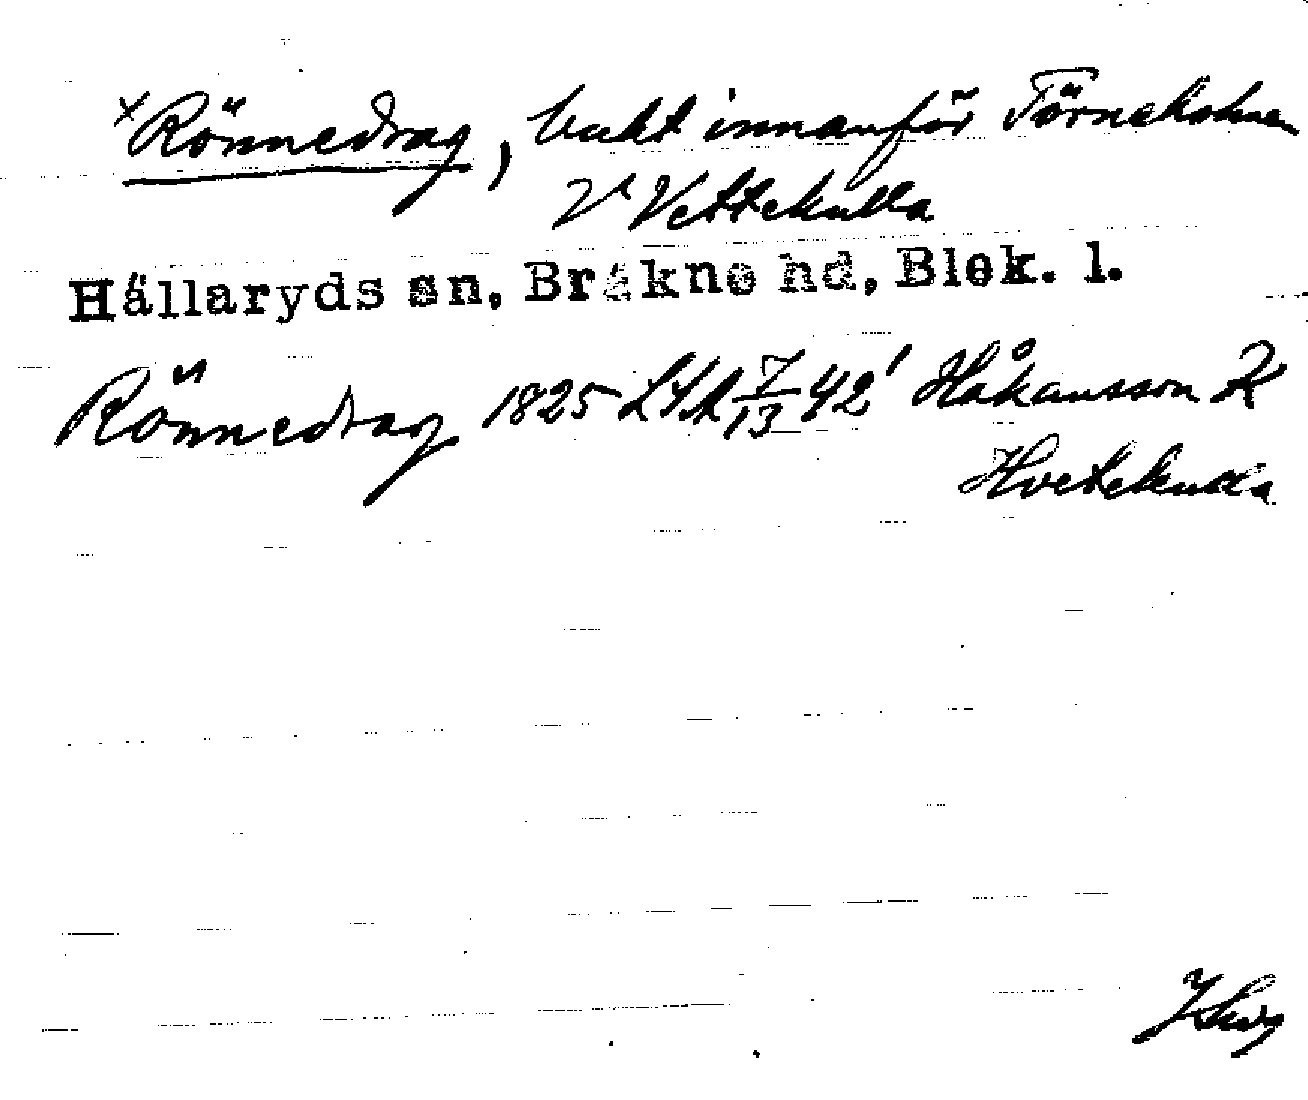 ×Rönnedrag, bukt innanför Törneholmen
V Vettekulla
Hällaryds sn, Bräkne hd, Blek. l.
Rönnedrag 1825 LSA 7/13 42' Håkansson K
Hvetekulla